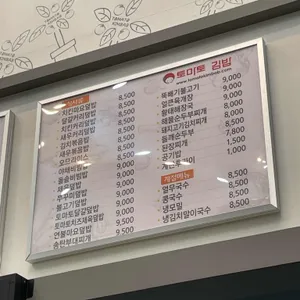 토마토 김밥
식사류
치킨마요덮밥 8,500
달걀카레덮밥 8,500
치킨카레덮밥 8,500
새우카레덮밥 8,500
김치볶음밥 8,500
새우볶음밥 8,500
오므라이스 8,500
야채비빔밥 8,500
돌솥비빔밥 9,000
쭈꾸미덮밥 9,000
불고기덮밥 9,000
토마토달걀덮밥 9,000
토마토치즈제육덮밥 9,000
연불아요덮밥 9,000
송탄부대찌개 9,000
뚝배기불고기 9,000
얼큰육개장 9,000
황태해장국 9,000
해물순두부찌개 8,000
돼지고기김치찌개 8,500
들깨순두부 8,500
된장찌개 7,800
공기밥 1,500
1,000
계절메뉴
열무국수 8,500
콩국수 8,500
냉모밀 8,500
냉김치말이국수 8,500